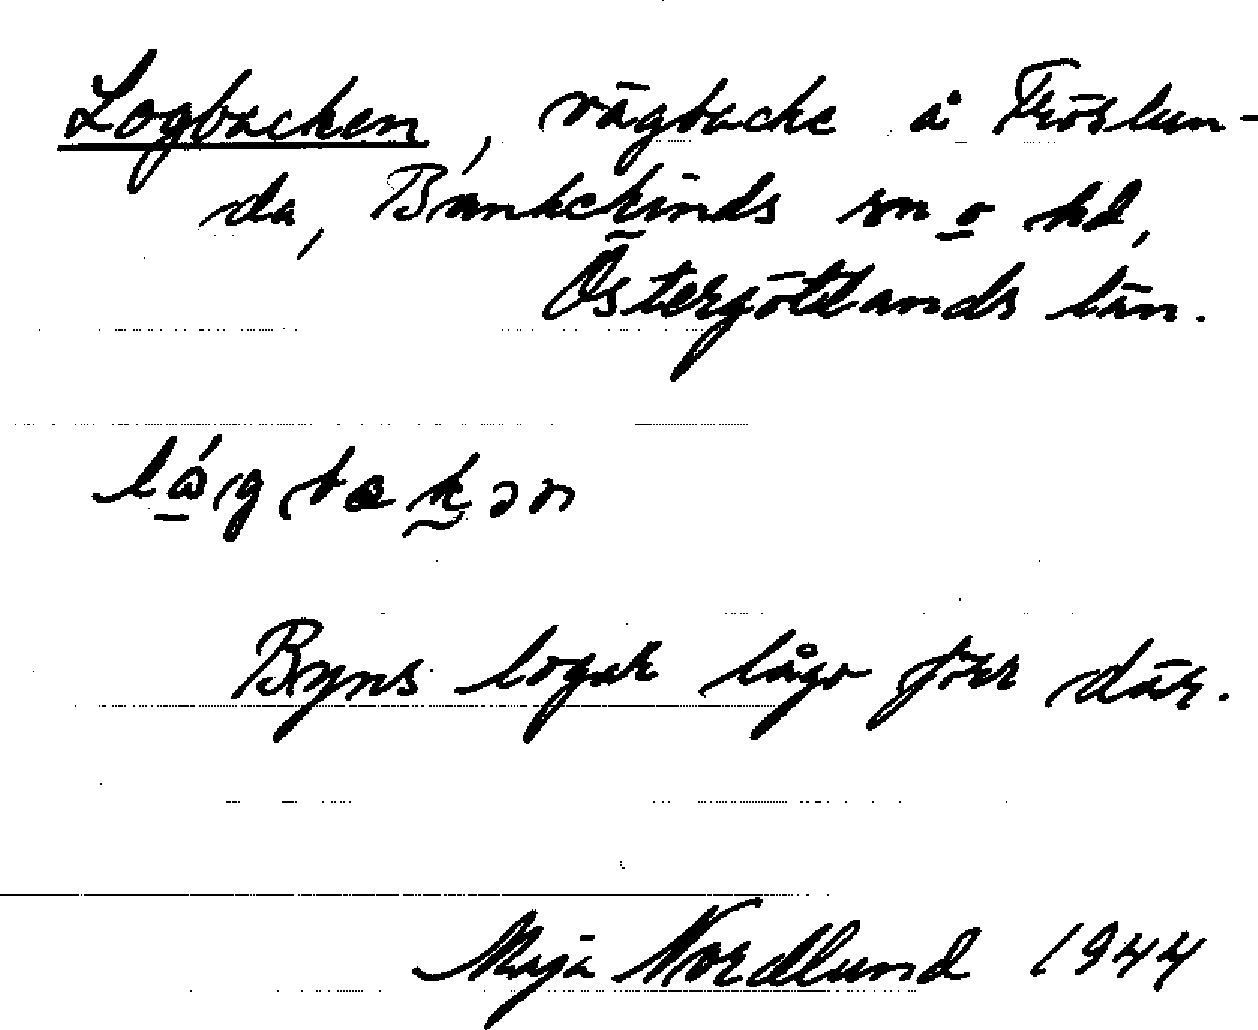 Logbacken, vägbacke å Fröslun-
da, Bankekinds sn o hd,
Östergötlands län.
lågbakən
Byns logar lågo förr där.
Maja Nordlund 1944